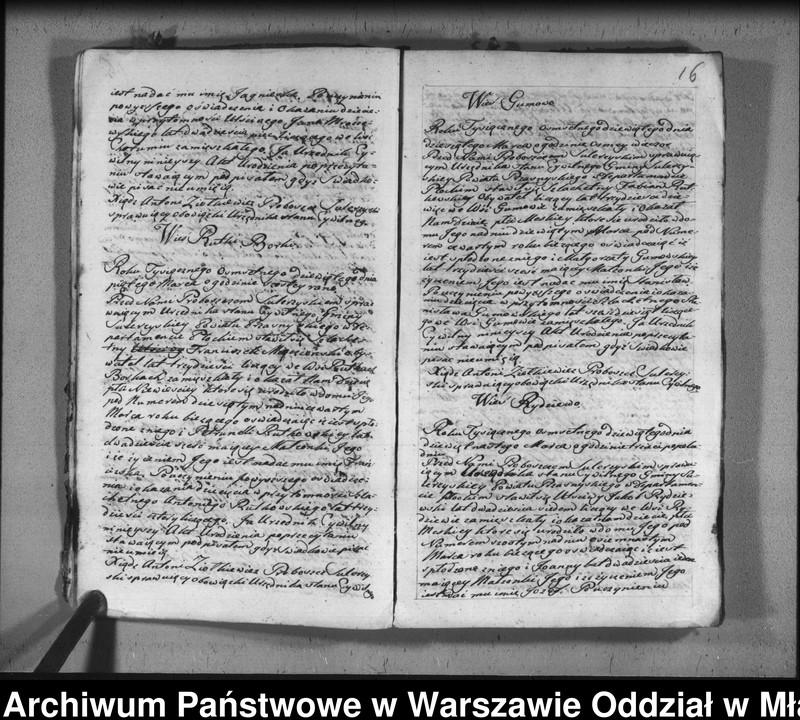 iest nadać mu imię Jagnieszka. Po uczynieniu
powyższego oświadczenia i Okazaniu dziecię-
cia w przytomności Uczciwego Jana
lat dwadzieścia liczącego we wsi
zamieszkałego. Ja Urzędnik Cy-
wilny niniejszy Akt Urodzenia po przeczyta-
niu stawającym podpisałem gdyż świadko-
wie pisać nie umieją.
Xiądz Antoni Ziółkiewicz Proboszcz Sulerzyski
sprawujący obowiązki Urzędnika stanu Cywilnego.
Wieś Rutki Borki
Roku Tysiącznego osmsetnego dziewiątego dnia
piątego Marca o godzinie
Przed Nami Proboszczem Sulerzyskim spra-
wującym Urzędnika stanu Cywilnego Gminy
Sulerzyskiey Powiatu Prasnyskiego w De-
partamencie Płockim stawił się Szlache-
tny Franciszek oby-
watel lat trzydzieści liczący we wsi Rutkach
Borkach zamieszkały i okazał Nam dziecię
płci Niewieściey które się urodziło w domu Jego
pod Numerem dziesiątym na dniu czwartym
Marca roku bieżącego oświadczając iż iest spło-
dzone z niego i Petroneli Rutkowskiey lat
dwadzieścia sześć maiącey Małżonki Jego
i że życzeniem Jego iest nadać mu imię Fran-
ciszka. Po uczynieniu powyższego oświadcze-
nia i okazania dziecięcia w przytomności Szla-
chetnego Antoniego Rutkowskiego lat trzy-
dzieści liczącego. Ja Urzędnik Cywilny
niniejszy Akt Urodzenia po przeczytaniu
stawającym podpisałem gdyż świadkowie pisać
nie umieją.
Xiądz Antoni Ziółkiewicz Proboszcz Sulerzy-
ski sprawujący obowiązki Urzędnika stanu Cywil.
16
Wieś Gumowo
Roku Tysiącznego osmsetnego dziewiątego dnia
dziesiątego Marca o godzinie osmey wieczor
Przed Nami Proboszczem Sulerzyskim sprawują-
cym Urzędnika stanu Cywilnego Gminy Sulerzy-
skiey Powiatu Prasnyskiego w Departamencie
Płockim stawił się Szlachetny Fabian Rut-
kowski Obywatel liczący lat trzydzieści dzie-
więć we Wsi Gumowie zamieszkały i Okazał
Nam dziecię płci Męskiey które się urodziło w do-
mu Jego na dniu dziewiątym Marca pod Nume-
rem czwartym roku bieżącego oświadczając iż
iest spłodzone z niego i Małgorzaty Gumowskiey
lat trzydzieści sześć maiącey Małżonki Jego i że
życzeniem Jego iest nadać mu imię Stanisław
Po uczynieniu powyższego oświadczenia i okaza-
niu dziecięcia w przytomności Szlachetnego Sta-
nisława Gumowskiego lat liczące-
go we Wsi Gumowie zamieszkałego. Ja Urzędnik
Cywilny niniejszy Akt Urodzenia po przeczyta-
niu stawającym podpisałem gdyż świadkowie
pisać nie umieją.
Xiądz Antoni Ziółkiewicz Proboszcz Sulerzy-
ski sprawujący obowiązki Urzędnika stanu Cywilnego
Wieś Rydzewo
Roku Tysiącznego osmsetnego dziewiątego dnia
dziewiętnastego Marca o godzinie trzeciey popołu-
dniu
Przed Nami Proboszczem Sulerzyskim sprawu-
jącym Urzędnika stanu Cywilnego Gminy Su-
lerzyskiey Powiatu Prasnyskiego w Departamen-
cie Płockim stawił się Uczciwy Jakob Rydze-
wski lat dwadzieścia siedem liczący we Wsi Ry-
dzewie zamieszkały i okazał Nam dziecię płci
Męskiey które się urodziło w domu Jego pod
Numerem szostym na dniu osiemnastym
Marca roku bieżącego oświadczając iż iest
spłodzone z niego i Joanny lat dwadzieścia
maiącey Małżonki Jego i że życzeniem Jego
iest nadać mu imię Jozef. Po uczynieniu
Archiwum Państwowe w Warszawie Oddział w Mła